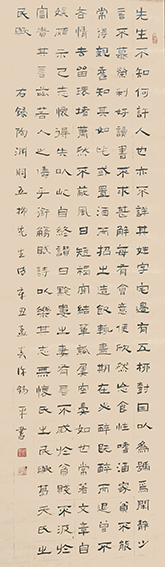 先生不知何許人也亦不詳其姓字宅邊有五柳樹因以為號焉閑靜少
言不慕榮利好讀書不求甚解每有會意便欣然忘食性嗜酒家貧不能
常得親舊知其如此或置酒而招之造飲輒盡期在必醉既醉而退曾不
吝情去留環堵蕭然不蔽風日短褐穿結簞瓢屢空晏如也常著文章自
娛頗示己志忘懷得失以此自終贊曰黔婁之妻有言不戚戚於貧賤不汲汲於
富貴其言茲若人之儔乎銜觴賦詩以樂其志無懷氏之民歟葛天氏之
民歟 右錄陶淵明五柳先生傳辛丑孟夏許錫平書